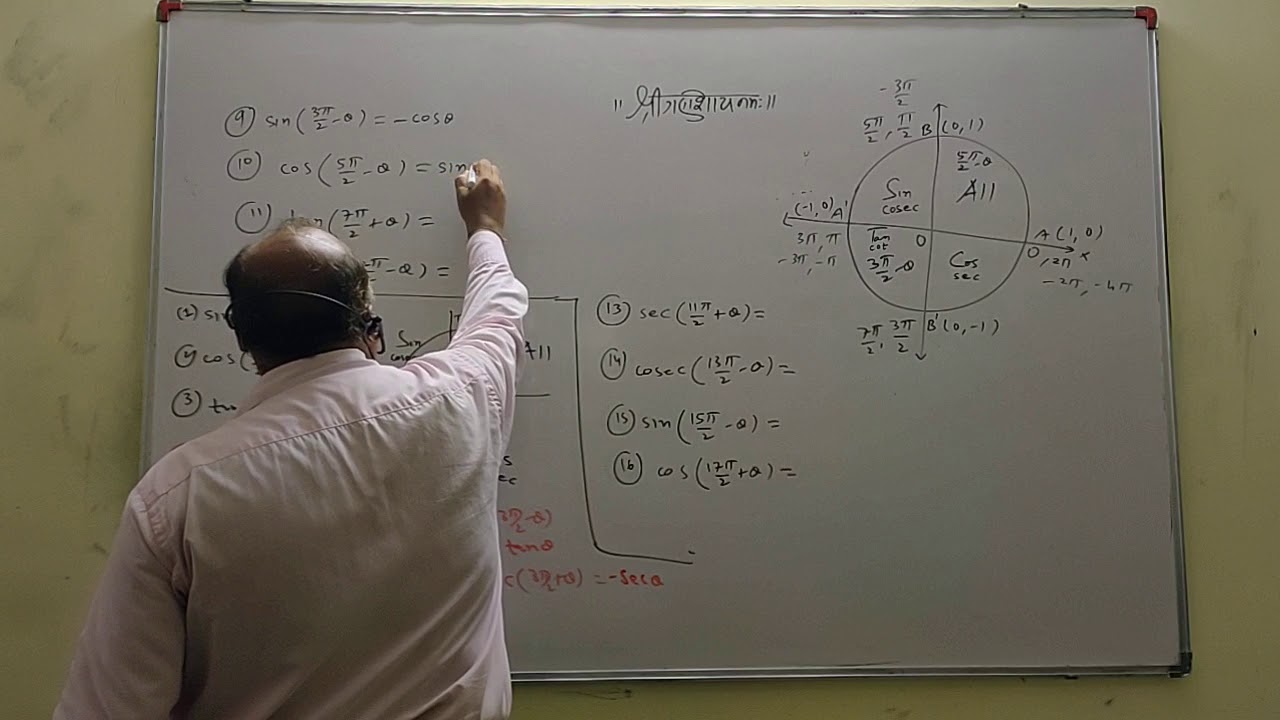 ॥ श्री गणेशाय नमः ॥
⑨ sin(3π/2 - θ) = -cosθ
⑩ cos(5π/2 - θ) = sin
⑪ (7π/2 + θ) =
- θ) =
(2) sin
cos(
③
Sin
All
3π/2 - θ)
tanθ
c(3π/2 + θ) = -secθ
⑬ sec(11π/2 + θ) =
⑭ cosec(13π/2 - θ) =
⑮ sin(15π/2 - θ) =
⑯ cos(17π/2 + θ) =
- 3π/2
5π/2, π/2 B (0, 1)
5π/2 - θ
Sin
cosec
All
(-1, 0) A'
3π, π
-3π, -π
Tan
cot
3π/2 - θ
O
Cos
sec
A (1, 0)
0, 2π x
-2π, -4π
7π/2, 3π/2 B' (0, -1)